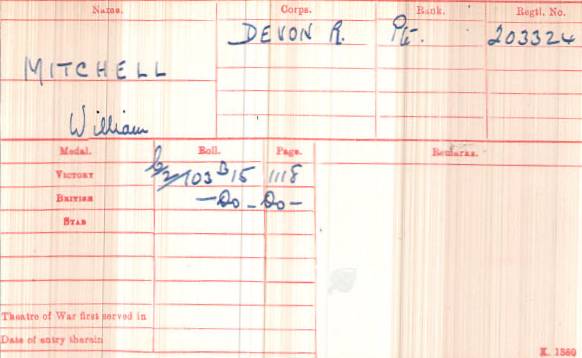 Name. Corps. Rank. Regtl. No.
DEVON R. Pte. 203324
MITCHELL
William
Medal. Roll. Page. Remarks.
VICTORY G/2/103 B15 1118
BRITISH —Do— Do—
STAR
Theatre of War first served in
Date of entry therein
K. 1380